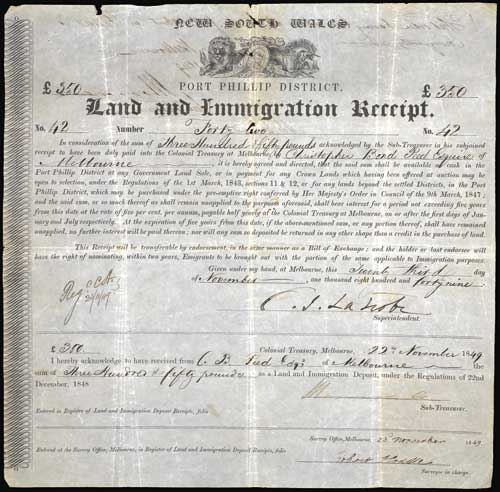 NEW SOUTH WALES.
PORT PHILLIP DISTRICT.
£ 350 £ 350
Land and Immigration Receipt.
No. 42 Number Forty two No. 42
In consideration of the sum of Three Hundred Fifty pounds acknowledged by the Sub-Treasurer in his subjoined
receipt to have been duly paid into the Colonial Treasury at Melbourne, by Christopher Bond Peed Esquire of
Melbourne it is hereby agreed and directed, that the said sum shall be available as cash in the
Port Phillip District at any Government Land Sale, or in payment for any Crown Lands which having been offered at auction may be
open to selection, under the Regulations of the 1st March, 1843, sections 11 & 12, or for any lands beyond the settled Districts, in the Port
Phillip District, which may be purchased under the pre-emptive right conferred by Her Majesty's Order in Council of the 9th March, 1847;
and the said sum, or so much thereof as shall remain unapplied to the purposes aforesaid, shall bear interest for a period not exceeding five years
from this date at the rate of five per cent, per annum, payable half yearly at the Colonial Treasury at Melbourne, on or after the first days of January
and July respectively. At the expiration of five years from this date, if the above-mentioned sum, or any portion thereof, shall have remained
unapplied, no further interest will be paid thereon; nor will any sum so deposited be returned in any other shape than a credit in the purchase of land.
This Receipt will be transferable by endorsement, in the same manner as a Bill of Exchange; and the holder or last endorsee will
have the right of nominating, within two years, Emigrants to be brought out with the portion of the same applicable to Immigration purposes.
Given under my hand, at Melbourne, this Twenty third day
of November one thousand eight hundred and forty nine
C. J. La Trobe
Superintendent.
£ 350. Colonial Treasury, Melbourne, 22nd November 1849
I hereby acknowledge to have received from C. B. Peed Esqr. of Melbourne the
sum of Three Hundred & fifty pounds as a Land and Immigration Deposit, under the Regulations of 22nd
December, 1848
Sub-Treasurer.
Entered in Register of Land and Immigration Deposit Receipts, folio
Survey Office, Melbourne, 23 November 1849
Entered at the Survey Office, Melbourne, in Register of Land and Immigration Deposit Receipts, folio
Robert Hoddle
Surveyor in charge.